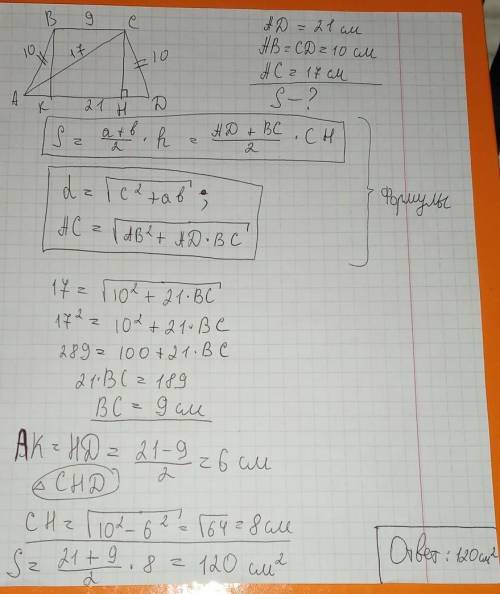 B 9 C
10 17 10
A K 21 H D
AD = 21 см
AB = CD = 10 см
AC = 17 см
S – ?
S = (a+b)/2 · h = (AD + BC)/2 · CH
d = √(c² + ab) ;
AC = √(AB² + AD·BC)
Формулы
17 = √(10² + 21·BC)
17² = 10² + 21·BC
289 = 100 + 21·BC
21·BC = 189
BC = 9 см
AK = HD = (21 – 9)/2 = 6 см
△ CHD
CH = √(10² – 6²) = √64 = 8 см
S = (21 + 9)/2 · 8 = 120 см²
Ответ: 120 см²